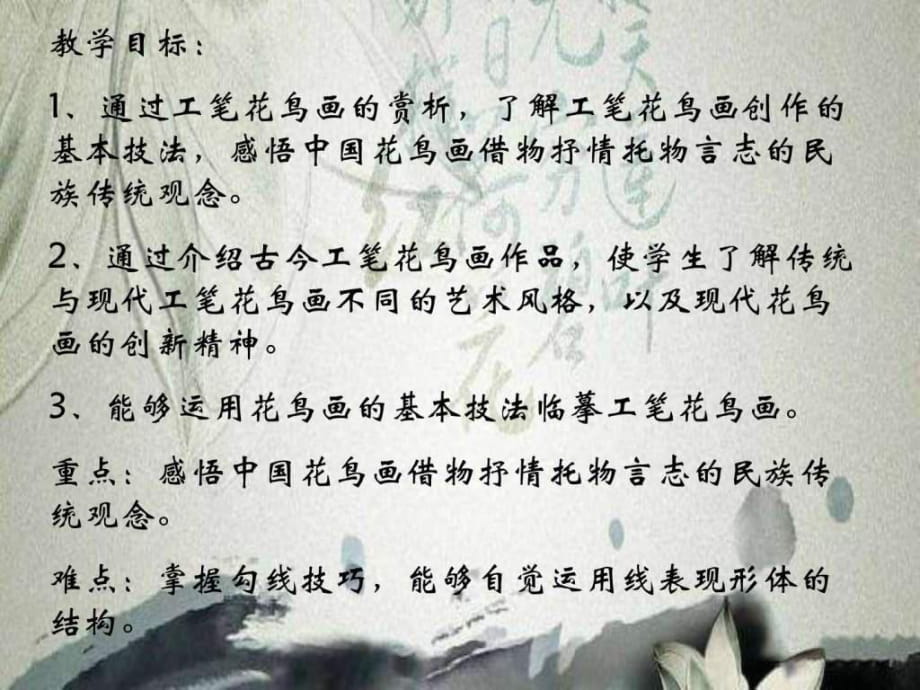 教学目标：
1、通过工笔花鸟画的赏析，了解工笔花鸟画创作的
基本技法，感悟中国花鸟画借物抒情托物言志的民
族传统观念。
2、通过介绍古今工笔花鸟画作品，使学生了解传统
与现代工笔花鸟画不同的艺术风格，以及现代花鸟
画的创新精神。
3、能够运用花鸟画的基本技法临摹工笔花鸟画。
重点：感悟中国花鸟画借物抒情托物言志的民族传
统观念。
难点：掌握勾线技巧，能够自觉运用线表现形体的
结构。